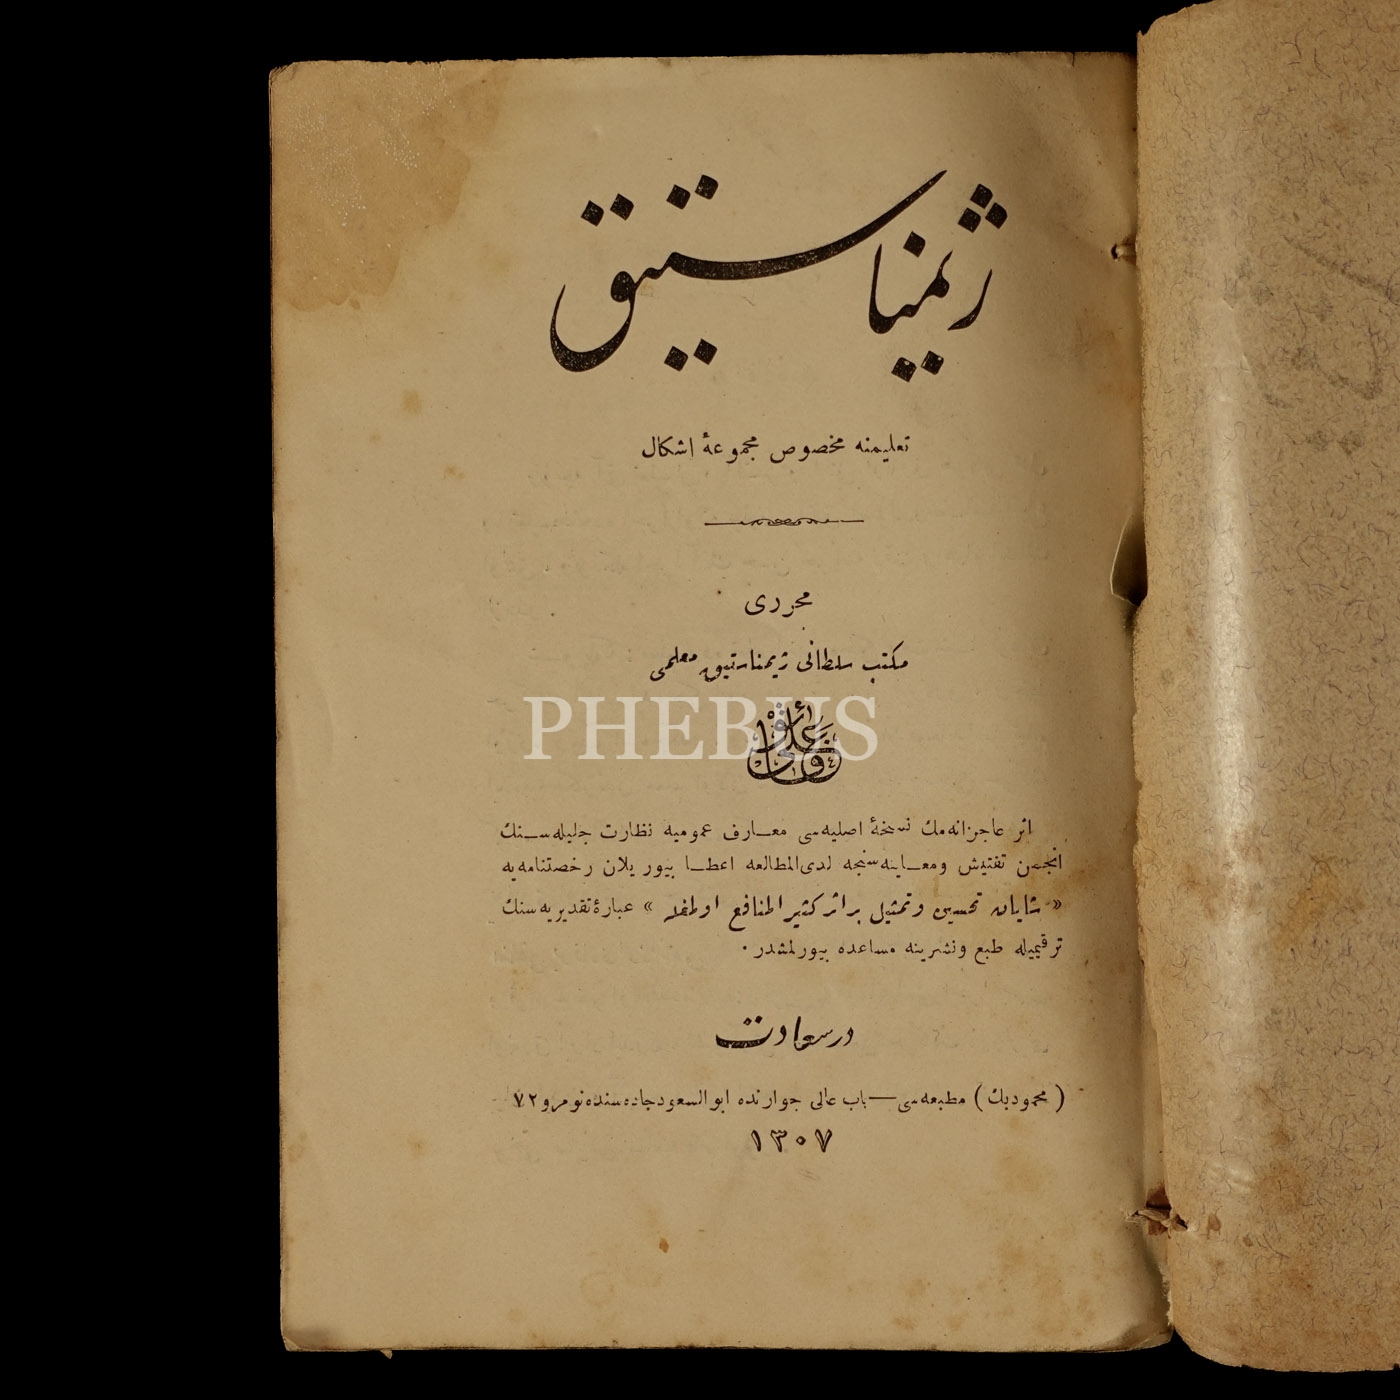 ژیمناستیق
تعلیمنه مخصوص مجموعهٔ اشکال
محرری
مکتب سلطانی ژیمناستیق معلمی
PHEBUS
علی فائق
اثر عاجزانه‌مك نسخهٔ اصلیه‌سی معـارف عمومیه نظارت جلیله‌سـنك
انجمن تفتیش ومعـاینه‌سنجه لدی‌المطالعه اعطـا بیوریلان رخصتنامه‌یه
« شایان تحسین وتمثیل براثر کثیرالمنافع اولمغله » عبارهٔ تقدیریه‌سنك
ترقیمیله طبع ونشرینه مساعده بیورلمشدر .
درسعادت
( محمودبك ) مطبعه‌سی — باب عالی جوارنده ابوالسعود جاده‌سنده نومرو ٧٢
١٣٠٧